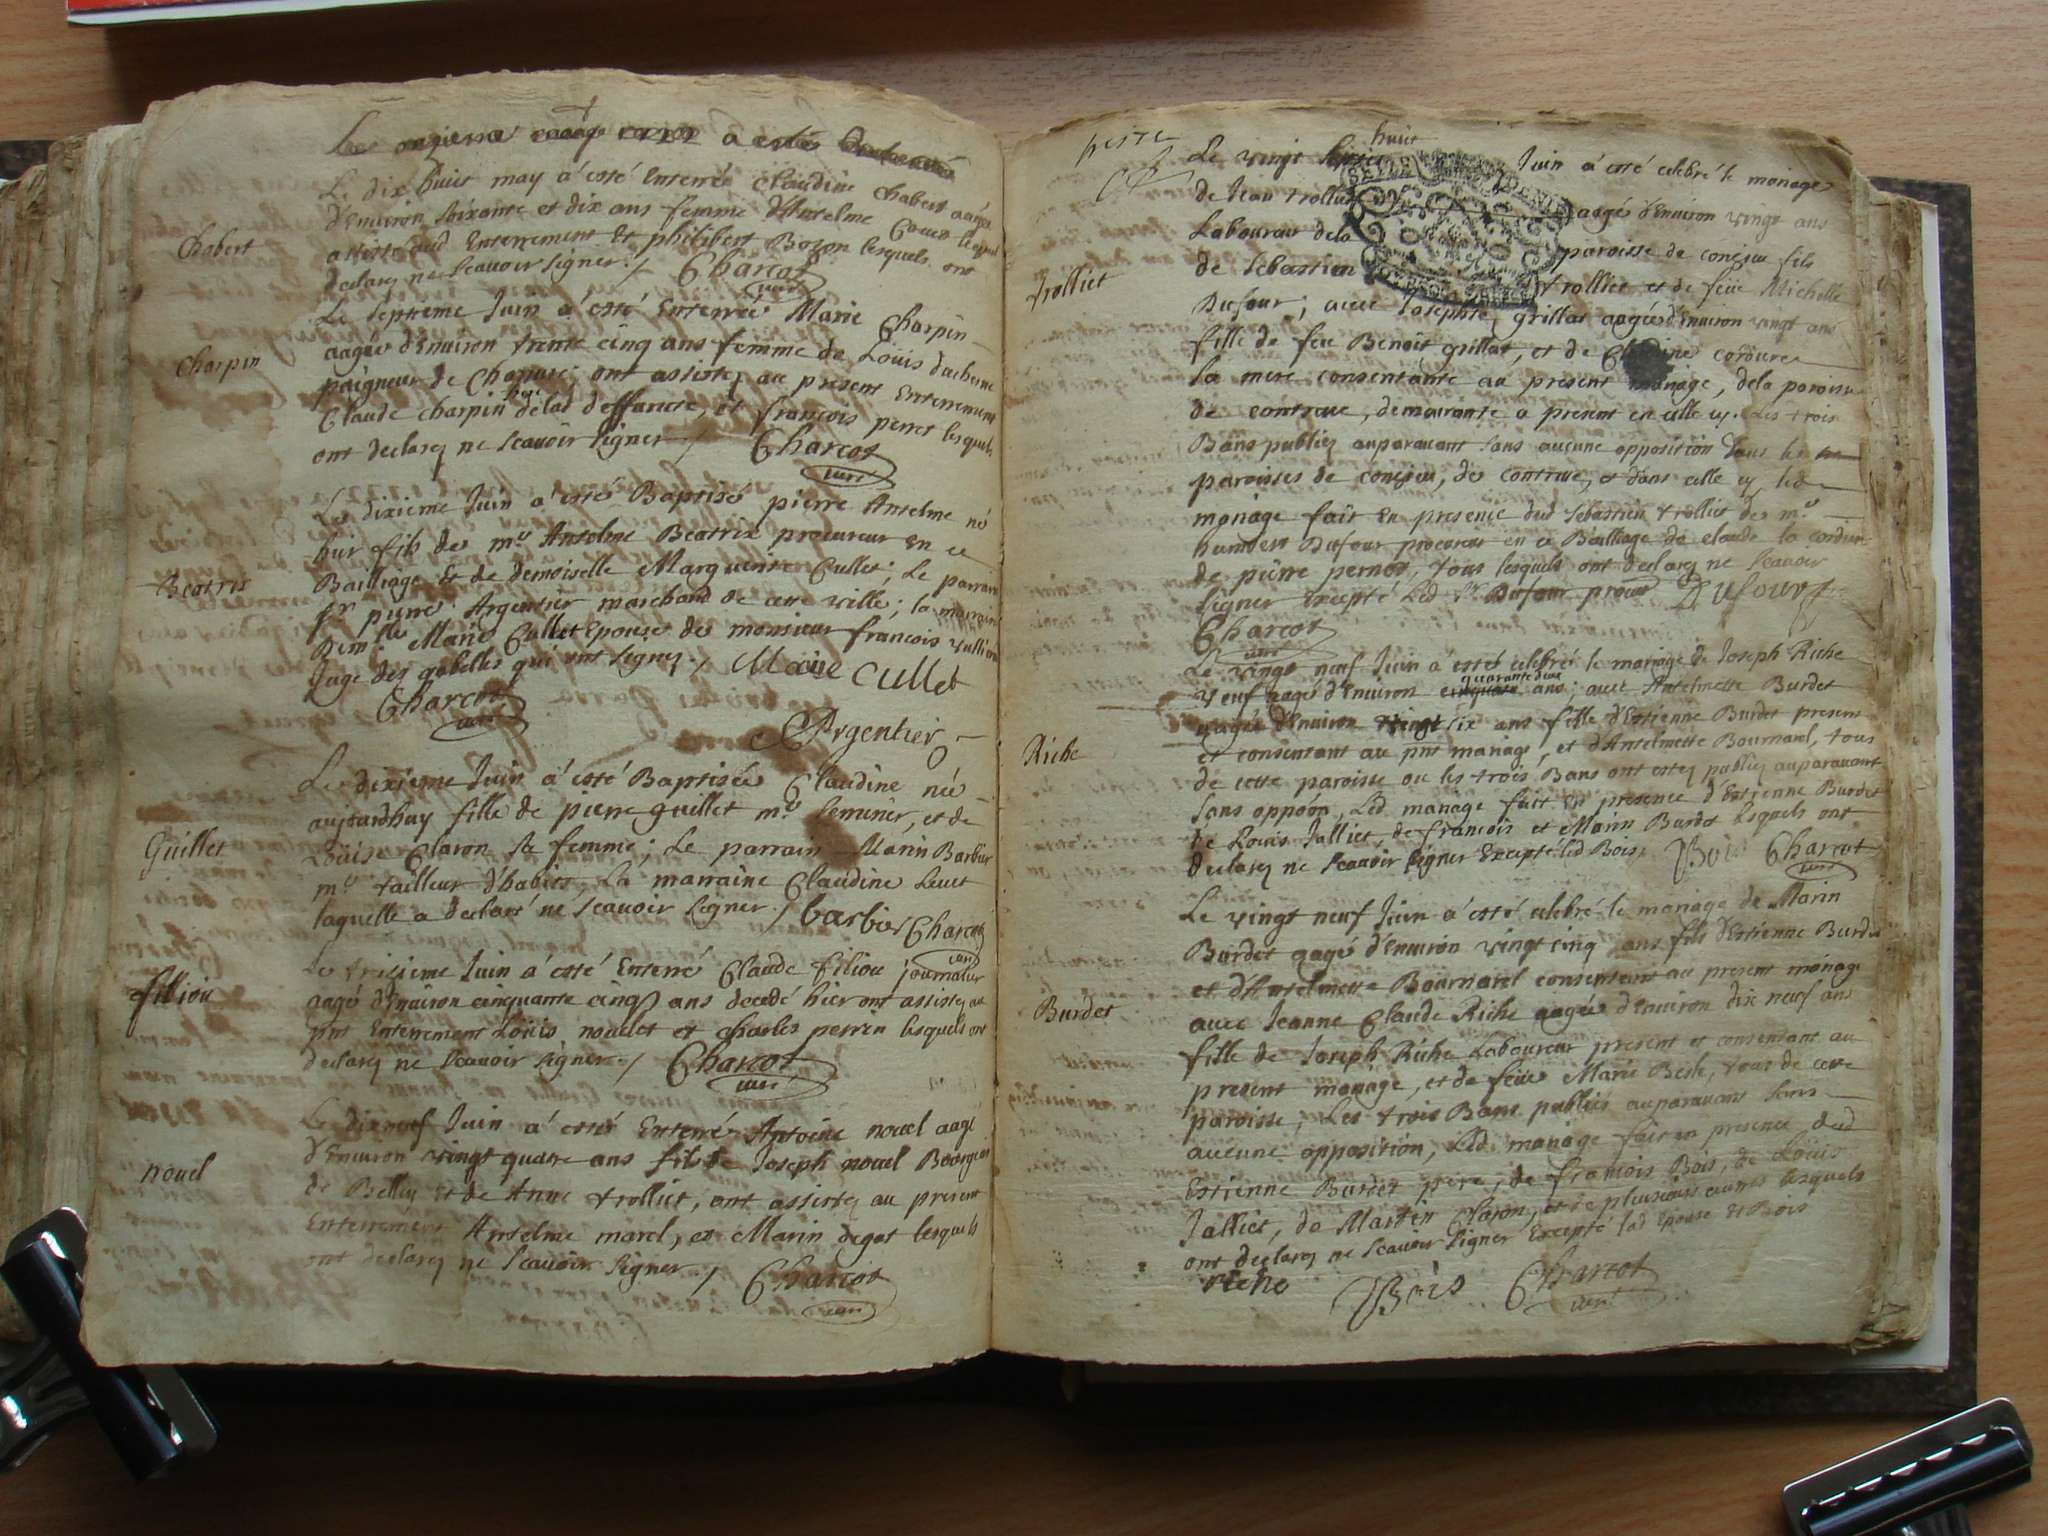 Le dix huit may a esté Enterrée Claudine Chabert aagée
d'Environ soixante et dix ans femme d'Antelme
Chabert
assisté aud Enterrement Et philibert Bozon lesquels ont
declarez ne scavoir signer / Charcot
curé
Le septieme Juin a esté Enterrée Marie Charpin
aagée d'Environ trente cinq ans femme de Loüis
Charpin
paigneur de ont assistez au present Enterrement
Claude Charpin pere de lad deffuncte, et francois perret lesquels
ont declarez ne scavoir signer / Charcot
curé
Le dixieme Juin a esté Baptisé pierre Antelme né
hier fils de mre Antelme Beatrix procureur en ce
Beatris
Bailliage Et de demoiselle Marguerite Cullet; Le parrain
sr pierre Argentier marchand de cette ville; la marraine
Demlle Marie Cullet Epouse de monsieur francois
Juge des gabelles qui ont signez / Marie Cullet
Charcot
curé
Argentier
Le dixieme Juin a esté Baptisée Claudine née
aujourdhuy fille de pierre guillet mre et de
Guillet
Loüise Claron sa femme; Le parrain Marin Barbier
mre tailleur d'habits, La marraine Claudine
laquelle a declaré ne scavoir signer / barbier Charcot
curé
Le Juin a esté Enterré Claude filiou journalier
filliou
aagé d'Environ cinquante cinq ans decedé hier ont assistez au
pnt Enterrement Loüis nouelet et Charles perrin lesquels ont
declarez ne scavoir signer / Charcot
curé
Le dixneuf Juin a esté Enterré Antoine nouel aagé
d'Environ vingt quatre ans fils de Joseph nouel Bourgeois
nouel
de Belley et de Anne trolliet, ont assistez au present
Enterrement Antelme marcl, et Marin degot lesquels
ont declarez ne scavoir signer / Charcot
curé
huit
Le vingt Juin a esté celebré le mariage
de Jean trolliet aagé d'Environ vingt ans
Laboureur de la paroisse de conzieu fils
de Sebastien trolliet et de feüe Michelle
trolliet
Dufour; avec Josephte grillat aagée d'Environ vingt ans
fille de feu Benoit grillat, et de cordure
sa mere consentante au present mariage, de la paroisse
de contreve, demeurante a present en celle cy. Les trois
Bans publiez auparavant sans aucune opposition dans les
paroisses de conzieu, de contreve, et dans celle cy led
mariage fait en presence dud Sebastien trolliet de mre
humbert Dufour procureur en ce Bailliage de claude
de pierre pernet, tous lesquels ont declarez ne scavoir
signer Excepté led Sr Dufour procur Dufour
Charcot
curé
Le vingt neuf Juin a esté celebré le mariage de Joseph Riche
quarante deux
veuf aagé d'Environ ans; avec Antelmette Burdet
aagée d'Environ vingt six ans fille d'Estienne Burdet present
Riche
et consentant au pnt mariage, et d'Antelmette Bournarel, tous
de cette paroisse ou les trois Bans ont estez publiez auparavant
sans oppoon, Led mariage fait en presence d'Estienne Burdet
de Loüis Jalliet, de francois et Marin Burdet lesquels ont
declarez ne scavoir signer Excepté led Bois / Bois Charcot
curé
Le vingt neuf Juin a esté celebré le mariage de Marin
Burdet aagé d'Environ vingt cinq ans fils d'Estienne Burdet
et d'Antelmette Bournarel consentent au present mariage
Burdet
avec Jeanne Claude Riche aagée d'Environ dix neuf ans
fille de Joseph Riche Laboureur present et consentant au
present mariage, et de feüe Marie tous de cette
paroisse, Les trois Bans publiés auparavant sans
aucune opposition, Led mariage fait en presence dud
Estienne Burdet pere, de francois Bois, de Loüis
Jalliet, de Martin Claron, et de plusieurs autres lesquels
ont declarez ne scavoir signer Excepté lad Epouse et Bois
riche Bois Charcot
curé